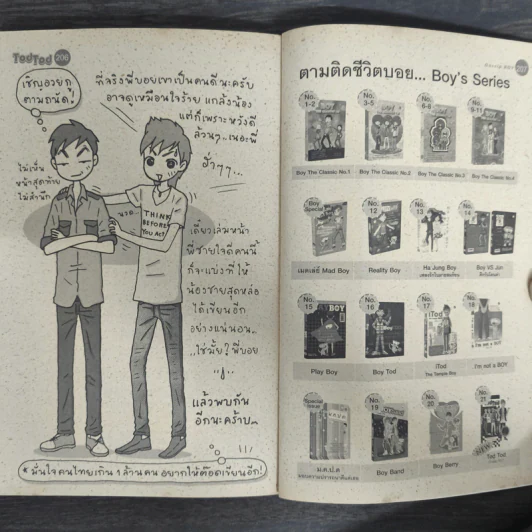 TedTed 206
เชิญอวยกู
ตามถนัด!
ที่จริงพี่บอยเขาเป็นคนดีนะครับ
อาจดูเหมือนใจร้าย แกล้งน้อง
แต่ก็เพราะหวังดี
ล้วนๆ..เนอะพี่
ฮ่าๆๆ...
ไม่เห็น
หน้าสุดท้าย
ไม่สำนึก
นวด..
THINK
BEFORE
YOU ACT
เดี๋ยวเล่มหน้า
พี่ชายใจดีคนนี้
ก็จะแบ่งที่ให้
น้องชายสุดหล่อ
ได้เขียนอีก
อย่างแน่นอน..
..ใช่มั้ย! พี่บอย
แล้วพบกัน
อีกนะคร้าบ~
* มั่นใจคนไทยเกิน 1 ล้านคน อยากให้ต๊อดเขียนอีก!
207
ตามติดชีวิตบอย... Boy's Series
No. 1-2
No. 3-5
No. 6-8
No. 9-11
Boy The Classic No.1
Boy The Classic No.2
Boy The Classic No.3
Boy The Classic No.4
Boy Special
No. 12
No. 13
No. 14
เมดเล่ย์ Mad Boy
Reality Boy
Ha Jung Boy
Boy VS Jun
No. 15
No. 16
No. 17
No. 18
PLAYBOY
Play Boy
Boy Tod
iTod
The Temple Boy
I'm not a BOY
Special Issue
No. 19
No. 20
No. 21
ม.ต.ป.ด
Boy Band
Boy Berry
Ted Tod